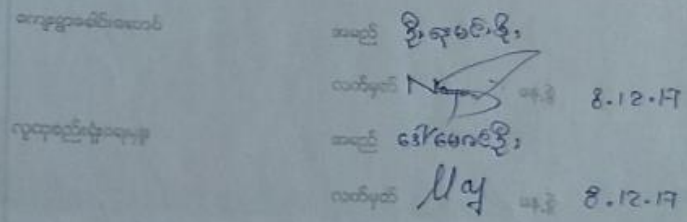 ကျေးရွာခေါင်းဆောင် အမည် ဦးရာမင်းစိုး
လက်မှတ် နေ့စွဲ 8.12.17
လူထုစည်းရုံးရေးမှူး အမည် ဒေါ်မေဝင်းစိုး
လက်မှတ် May နေ့စွဲ 8.12.17